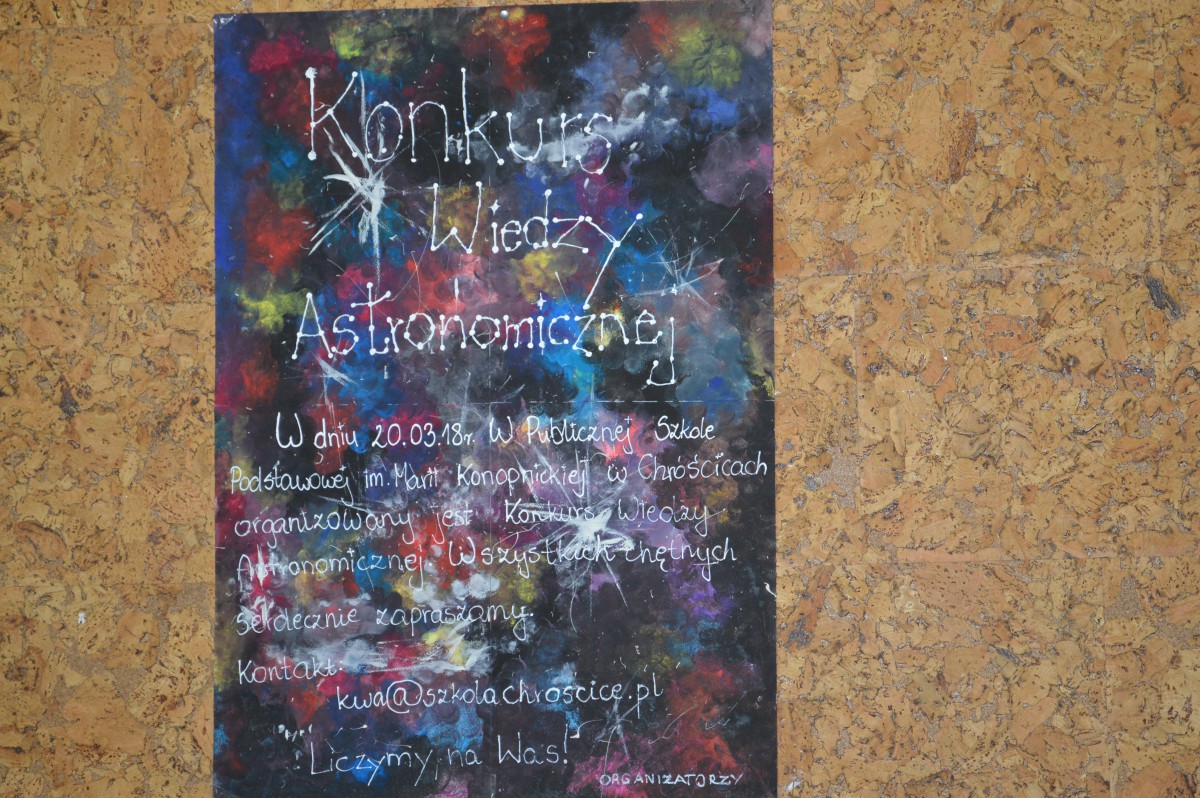 Konkurs
Wiedzy
Astronomicznej
W dniu 20.03.18r. W Publicznej Szkole
Podstawowej im. Marii Konopnickiej w Chróścicach
organizowany jest Konkurs Wiedzy
Astronomicznej. Wszystkich chętnych
serdecznie zapraszamy.
Kontakt:
kwa@szkolachroscice.pl
Liczymy na Was!
ORGANIZATORZY